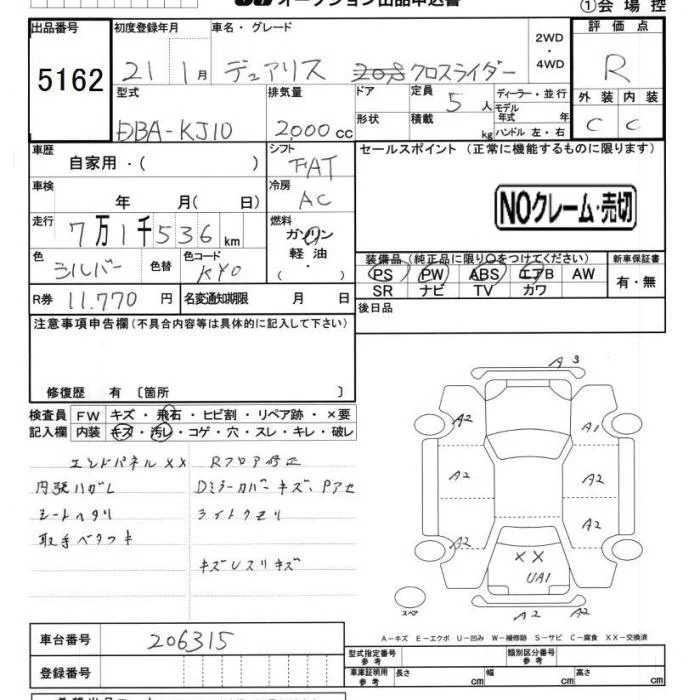 オークション出品申込書
①会場控
出品番号
5162
初度登録年月
21 1月
車名・グレード
デュアリス 20S クロスライダー
2WD
・
4WD
評価点
R
外装 内装
C C
型式
DBA-KJ10
排気量
2000cc
ドア
形状
定員
5人
積載
kg
ディーラー・並行
モデル
年式 年
ハンドル 左・右
車歴
自家用・( )
シフト
FAT
セールスポイント (正常に機能するものに限ります)
NOクレーム・売切
車検
年 月( 日)
冷房
AC
走行
7万1千536km
燃料
ガソリン
軽油
( ・ )
色
シルバー
色替
色コード
KY0
装備品 (純正品に限り○をつけてください)
PS PW ABS エアB AW
SR ナビ TV カワ
新車保証書
有・無
R券 11,770円
名変通知期限 月 日
後日品
注意事項申告欄 (不具合内容等は具体的に記入して下さい)
修復歴 有 〔箇所 〕
検査員 FW キズ・飛石・ヒビ割・リペア跡・×要
記入欄 内装 キズ・汚レ・コゲ・穴・スレ・キレ・破レ
エンドパネルXX Rフロア修正
内張ハガレ Dミラーカバーキズ、Pアセ
シートヘタリ ライトクモリ
取手ベタツキ
キズUスリキズ
A3
A2
A1
A2
A2
A2
A2
XX
UA1
スペア
A2
A2
A-キズ E-エクボ U-凹み W-補修跡 S-サビ C-腐食 XX-交換済
車台番号
206315
登録番号
型式指定番号
参考
類別区分番号
参考
車庫証明用
参考
長さ cm
幅 cm
高さ cm